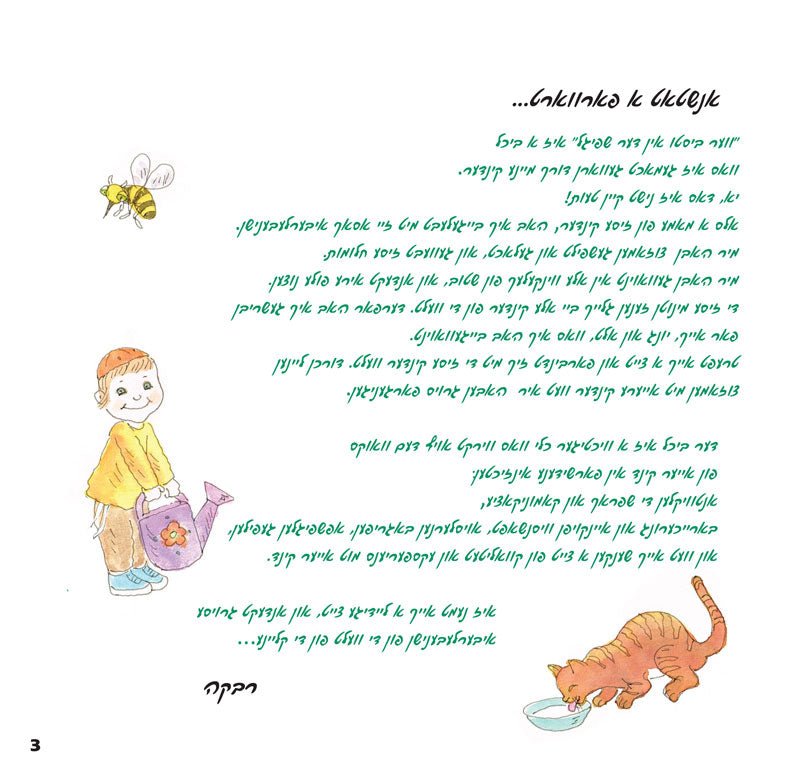 אנשטאט א פארווארט...
"ווער ביסטו אין דער שפיגל" איז א ביכל
וואס איז געמאכט געווארן דורך מיינע קינדער.
יא, דאס איז נישט קיין טעות!
אלס א מאמע פון זיסע קינדער, האב איך בייגעלעבט מיט זיי אסאך איבערלעבענישן.
מיר האבן צוזאמען געשפילט און געלאכט, און געוועבט זיסע חלומות.
מיר האבן געוואוינט אין אלע ווינקעלעך פון שטוב, און אנדעקט אירע פולע נוצען.
די זיסע מינוטן זענען גלייך ביי אלע קינדער פון די וועלט. דערפאר האב איך געשריבן
פאר אייך, יונג און אלט, וואס איך האב בייגעוואוינט.
טרעפט אייך א צייט און פארבינדט זיך מיט די זיסע קינדער וועלט. דורכן ליינען
צוזאמען מיט אייערע קינדער וועט איר האבען גרויס פארגעניגען.
דער ביכל איז א וויכטיגער כלי וואס ווירקט אויף דעם וואוקס
פון אייער קינד אין פארשידענע אינזיכטען:
אנטוויקלען די שפראך און קאמוניקאציע,
בארייכערונג און איינקויפן וויסנשאפט, אויסלערנען באגריפען, אפשפיגלען געפילען,
און וועט אייך שענקען א צייט פון קוואליטעט און עקספעריענס מוט אייער קינד.
איז נעמט אייך א ליידיגע צייט, און אנדעקט גרויסע
איבערלעבענישן פון די וועלט פון די קליינע...
רבקה
3